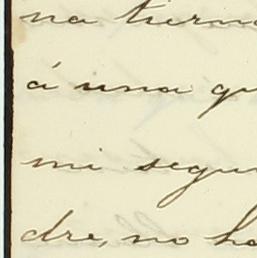 na tiern
á una qu
mi segu
dre, no ha